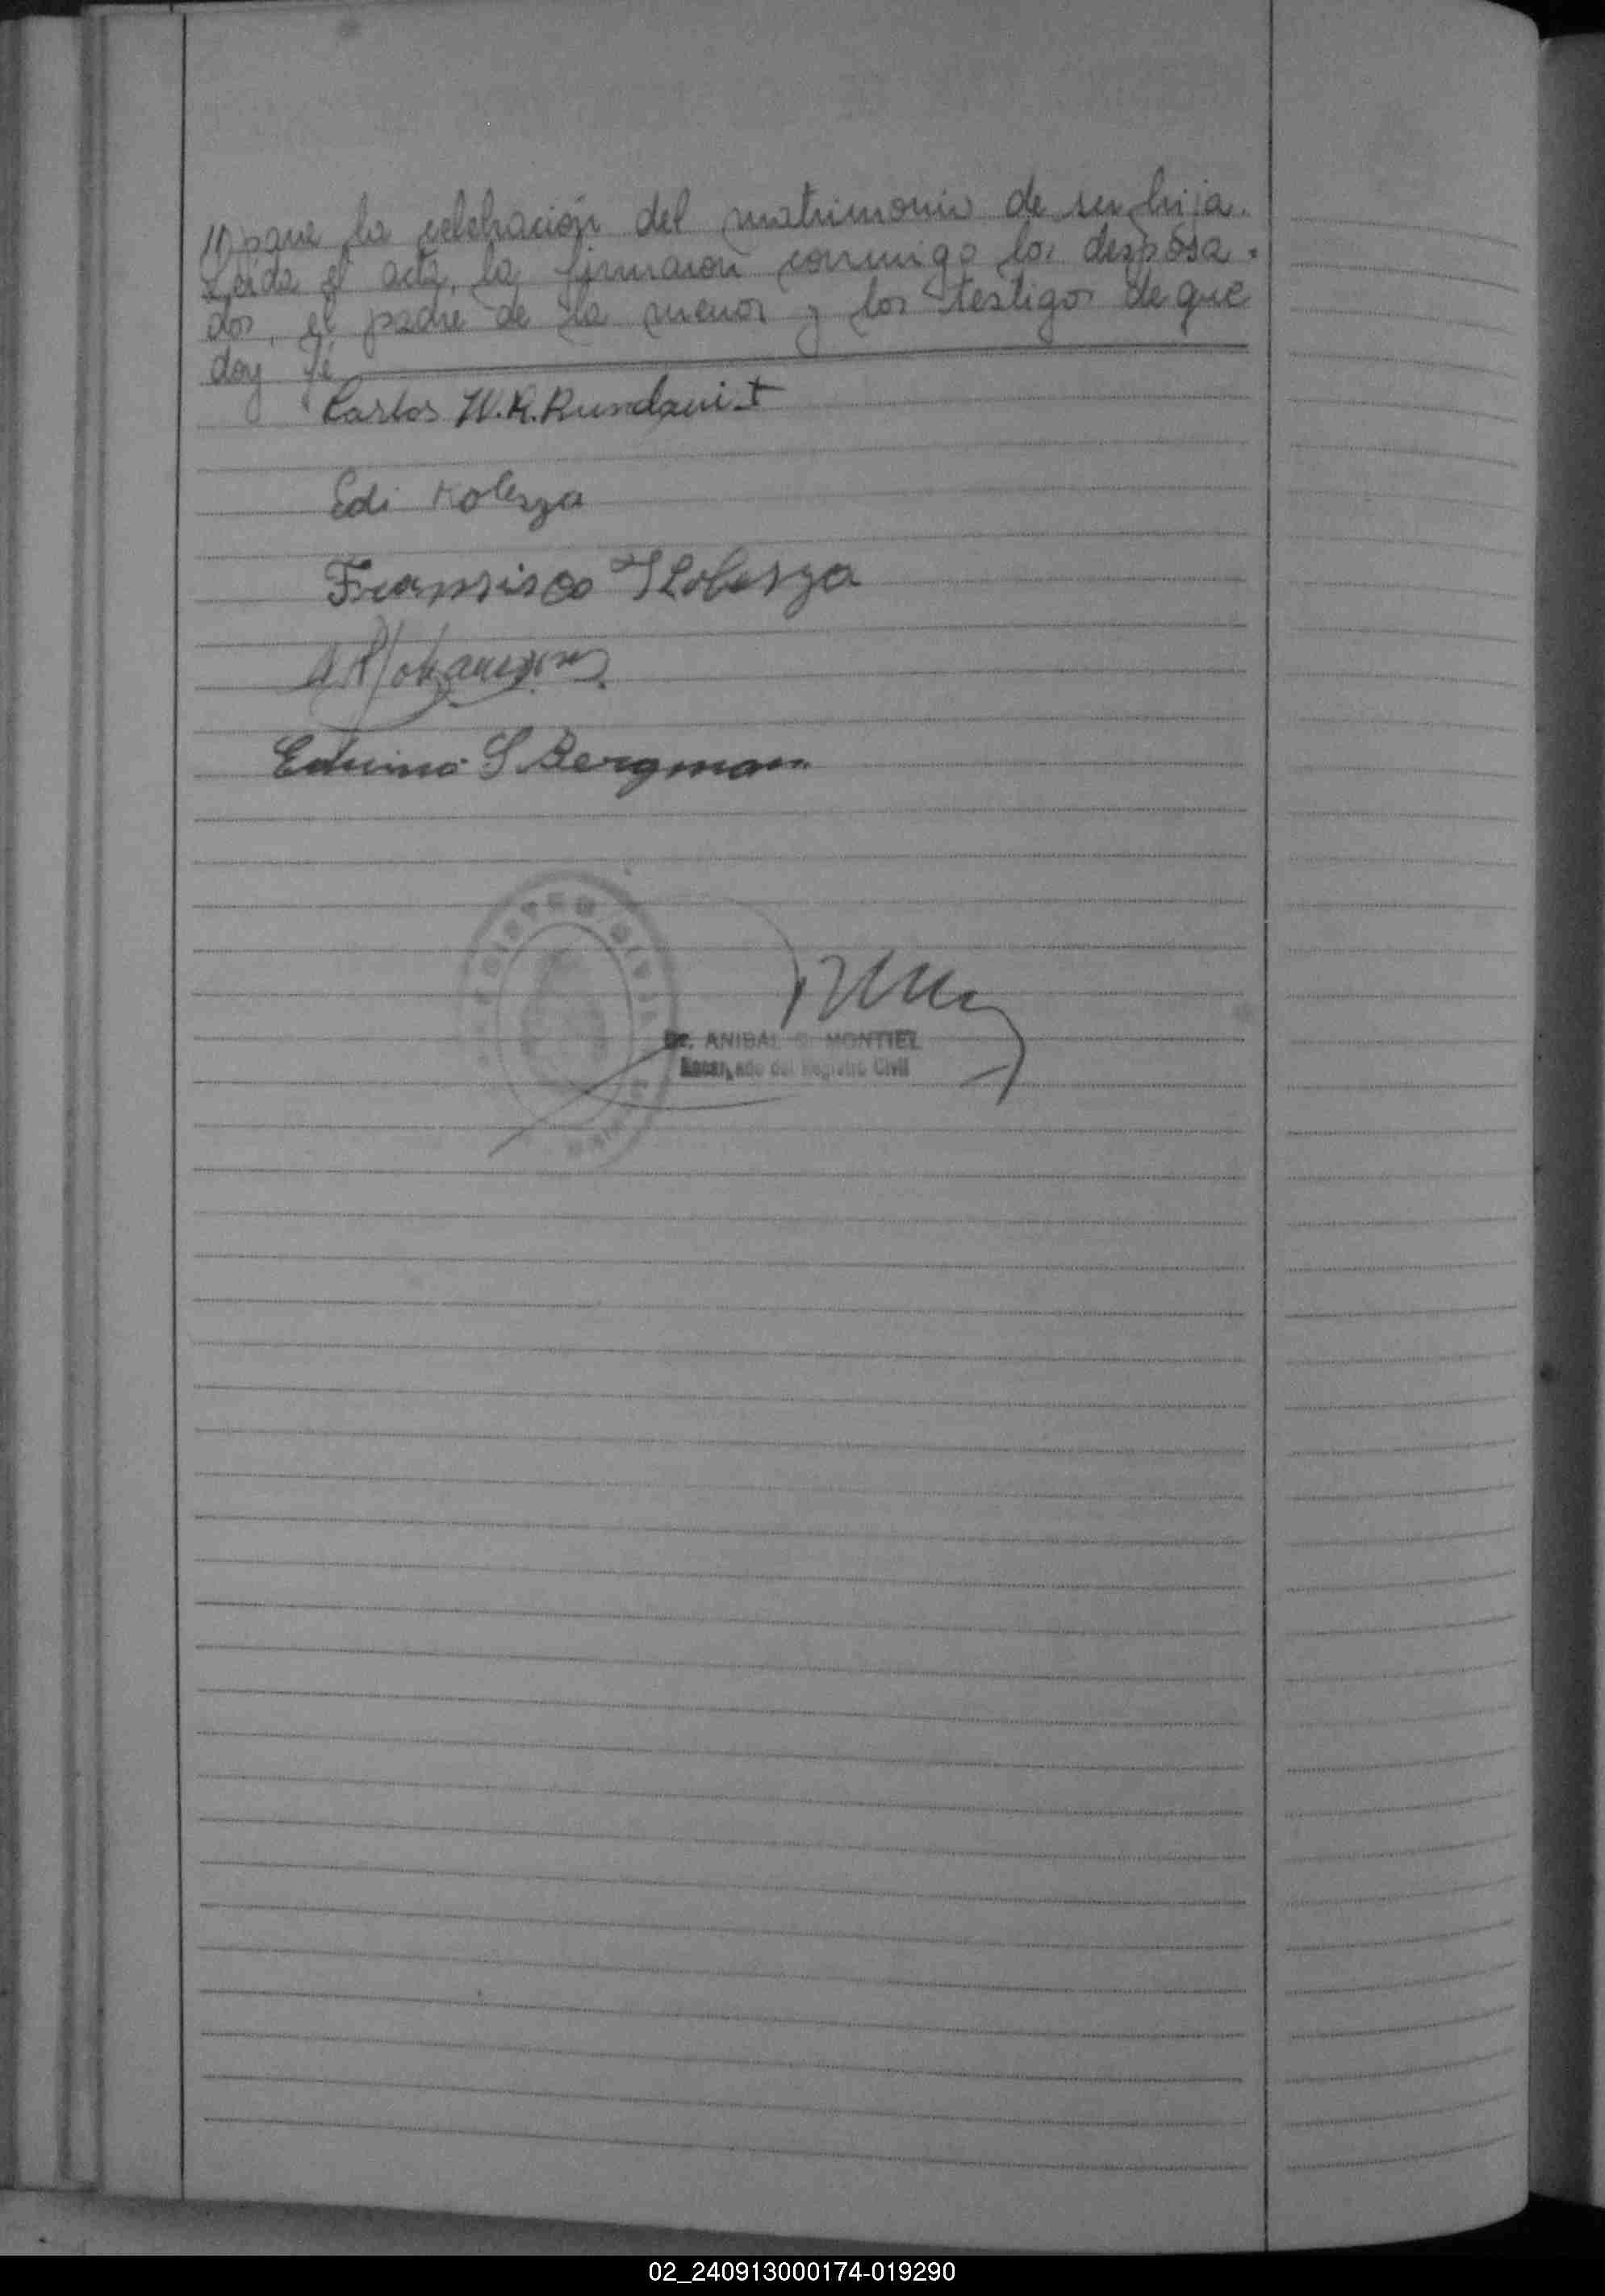 para la celebración del matrimonio de su hija.
Leida el acta, la firmaron conmigo los desposa-
dos, el padre de la menor y los testigos de que
doy fé
Carlos W. R. Rundqvist
Edi Kolesza
Fransisco Kolesza
Edvino S Bergman
Dr. ANIBAL MONTIEL
Encargado del Registro Civil
02_240913000174-019290